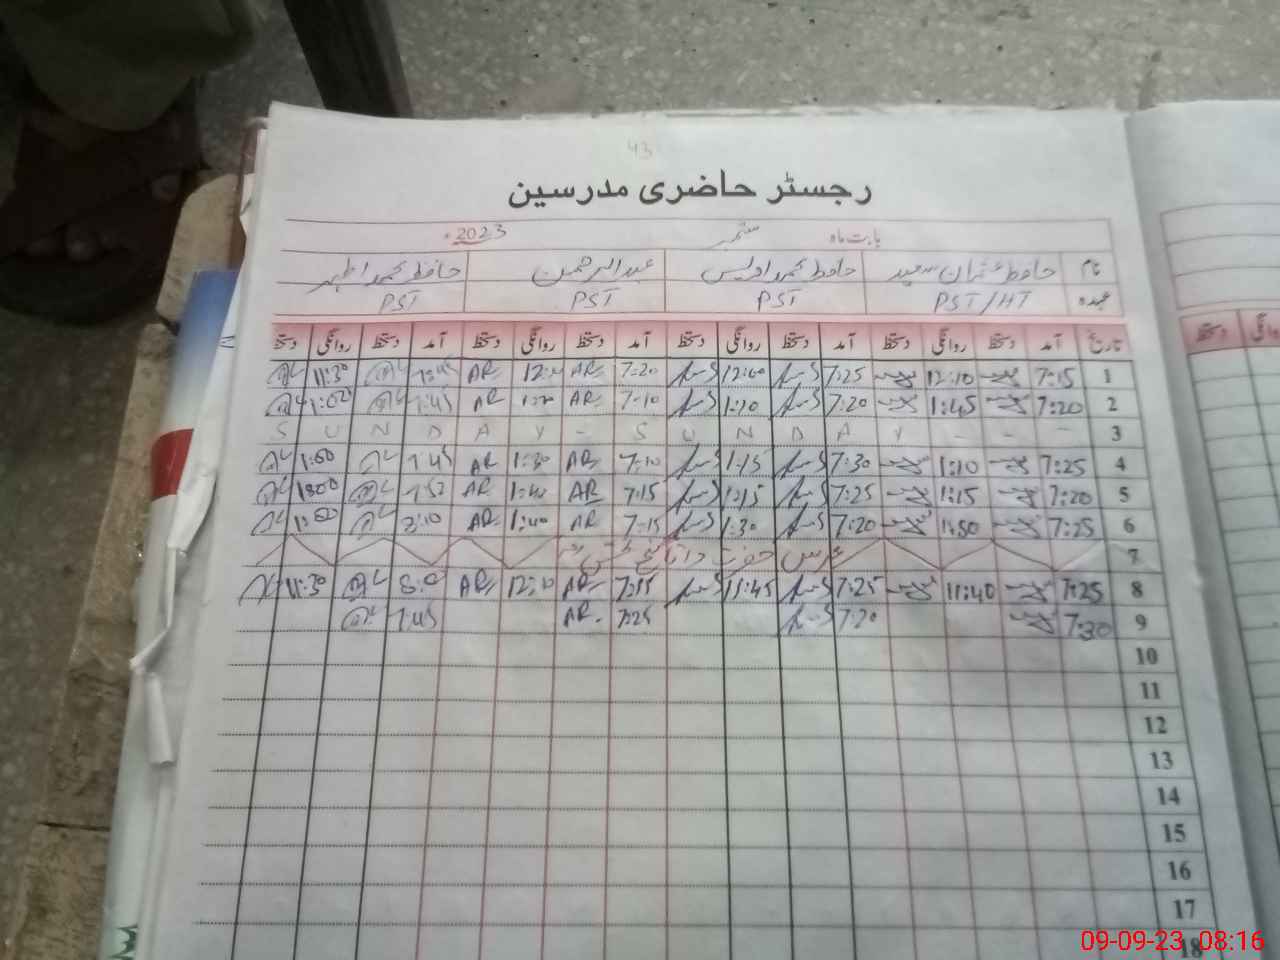 43
رجسٹر حاضری مدرسین
بابت ماہ ستمبر 2023ء
نام حافظ عمران سعید حافظ محمد اویس عبدالرحمن حافظ محمد اطہر
عہدہ PST/HT PST PST PST
تاریخ آمد دستخط روانگی دستخط آمد دستخط روانگی دستخط آمد دستخط روانگی دستخط آمد دستخط روانگی دستخط
1 7:15 12:10 7:25 12:00 7:20 AR 12:00 AR 7:45 11:30
2 7:20 1:45 7:20 1:10 7:10 AR AR 7:45 1:00
3 S U N D A Y - S U N D A Y - - -
4 7:25 1:10 7:30 1:15 7:10 AR 1:30 AR 7:45 1:00
5 7:20 1:15 7:25 1:15 7:15 AR 1:40 AR 7:52 1:00
6 7:25 1:50 7:20 1:30 7:15 AR 1:40 AR 1:00
7 عرس حضرت داتا گنج بخش
8 7:25 11:40 7:25 11:45 7:15 AR 12:10 AR 11:30
9 7:30 7:20 7:25 AR 7:45
10
11
12
13
14
15
16
17
18
دستخط روانگی
09-09-23 08:16